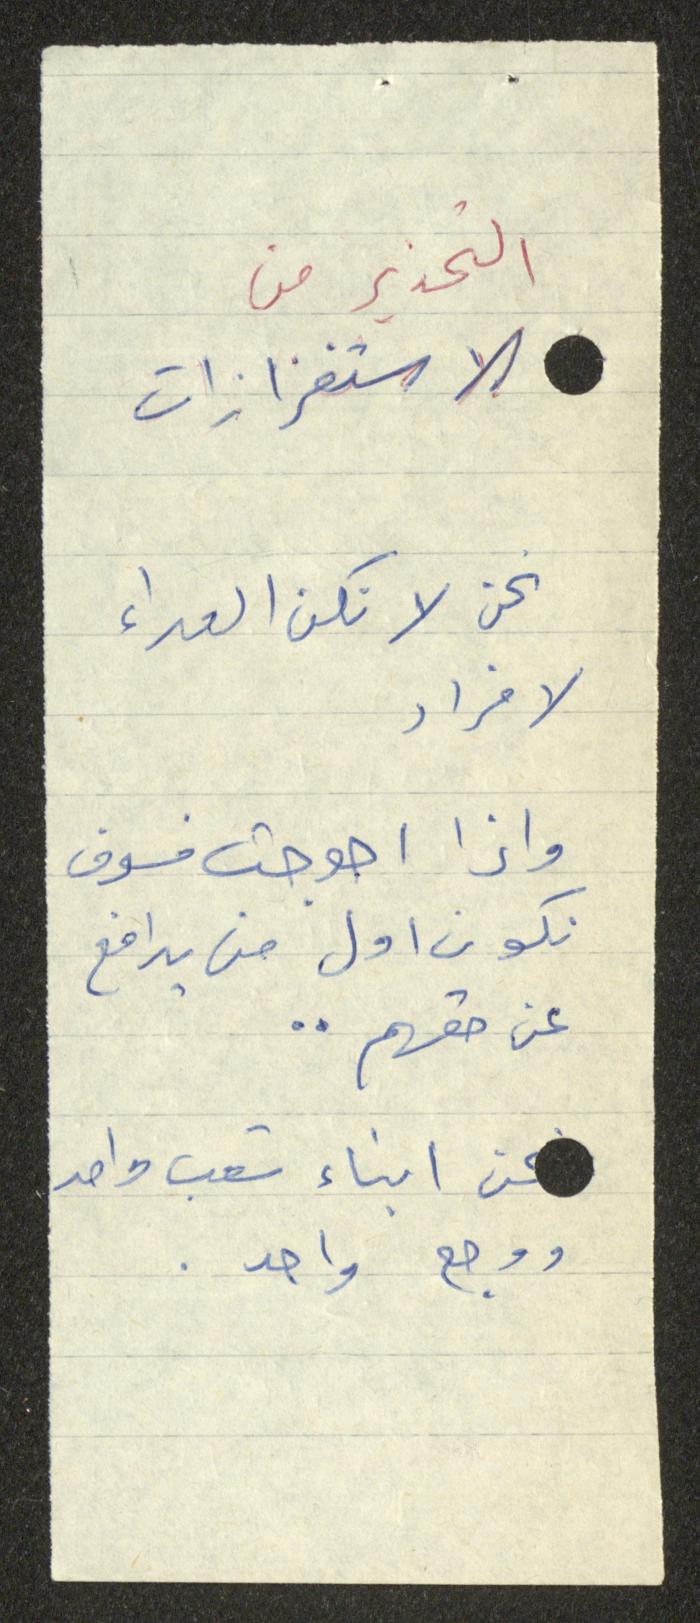 التحذير من
الاستفزازات
نحن لا نكن العداء
لافراد
واذا احوجت فسوف
نكون اول من يدافع
عن حقهم ..
نحن ابناء شعب واحد
ووجع واحد .